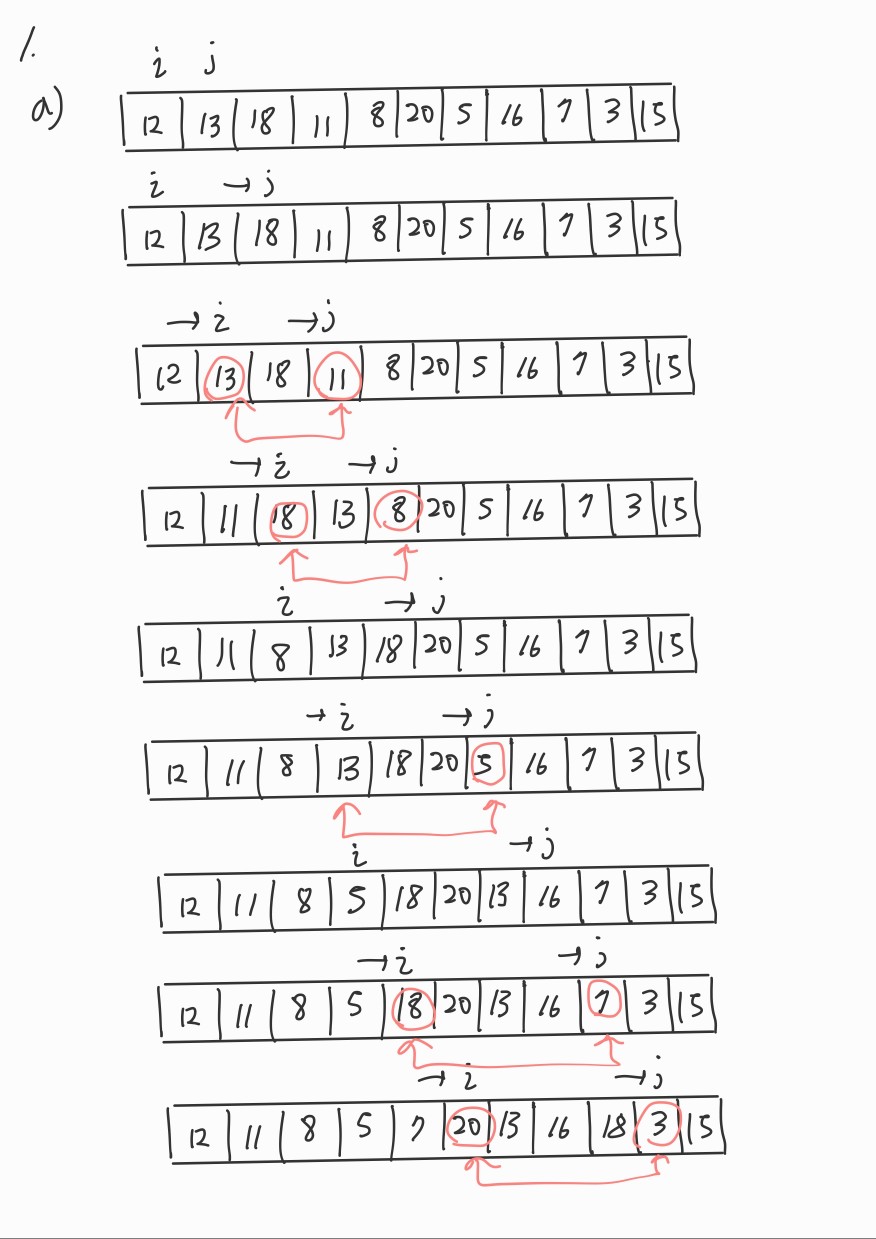 1.
i j
a) 12 13 18 11 8 20 5 16 7 3 15
i → j
12 13 18 11 8 20 5 16 7 3 15
→ i → j
12 13 18 11 8 20 5 16 7 3 15
→ i → j
12 11 18 13 8 20 5 16 7 3 15
i → j
12 11 8 13 18 20 5 16 7 3 15
→ i → j
12 11 8 13 18 20 5 16 7 3 15
i → j
12 11 8 5 18 20 13 16 7 3 15
→ i → j
12 11 8 5 18 20 13 16 7 3 15
→ i → j
12 11 8 5 7 20 13 16 18 3 15